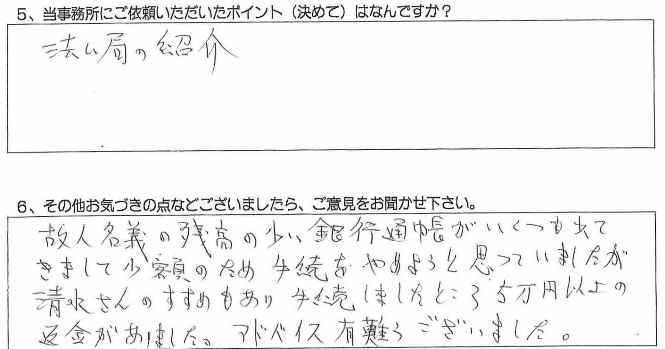 5、当事務所にご依頼いただいたポイント（決めて）はなんですか？
法ム局の紹介
6、その他お気づきの点などございましたら、ご意見をお聞かせ下さい。
故人名義の残高の少い銀行通帳がいくつも出て
きまして少額のため手続をやめようと思っていましたが
清水さんのすすめもあり手続しましたところ5万円以上の
返金がありました。アドバイス有難うございました。